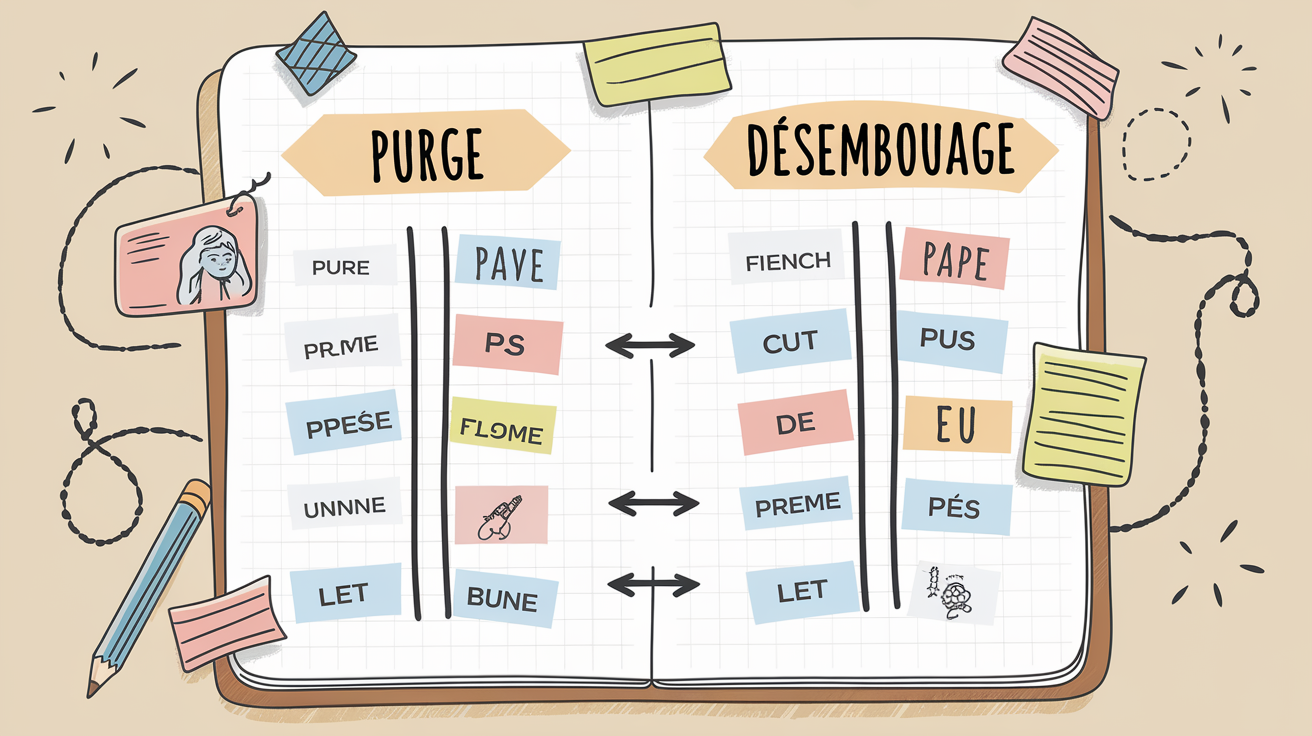 PURGE
PURE
PAVE
PR.ME
PS
PPEŚE
FLOME
UNNNE
LET
BUNE
DÉSEMBOUAGE
FIENCH
PAPE
CUT
PUS
DE
EU
PREME
PÉS
LET